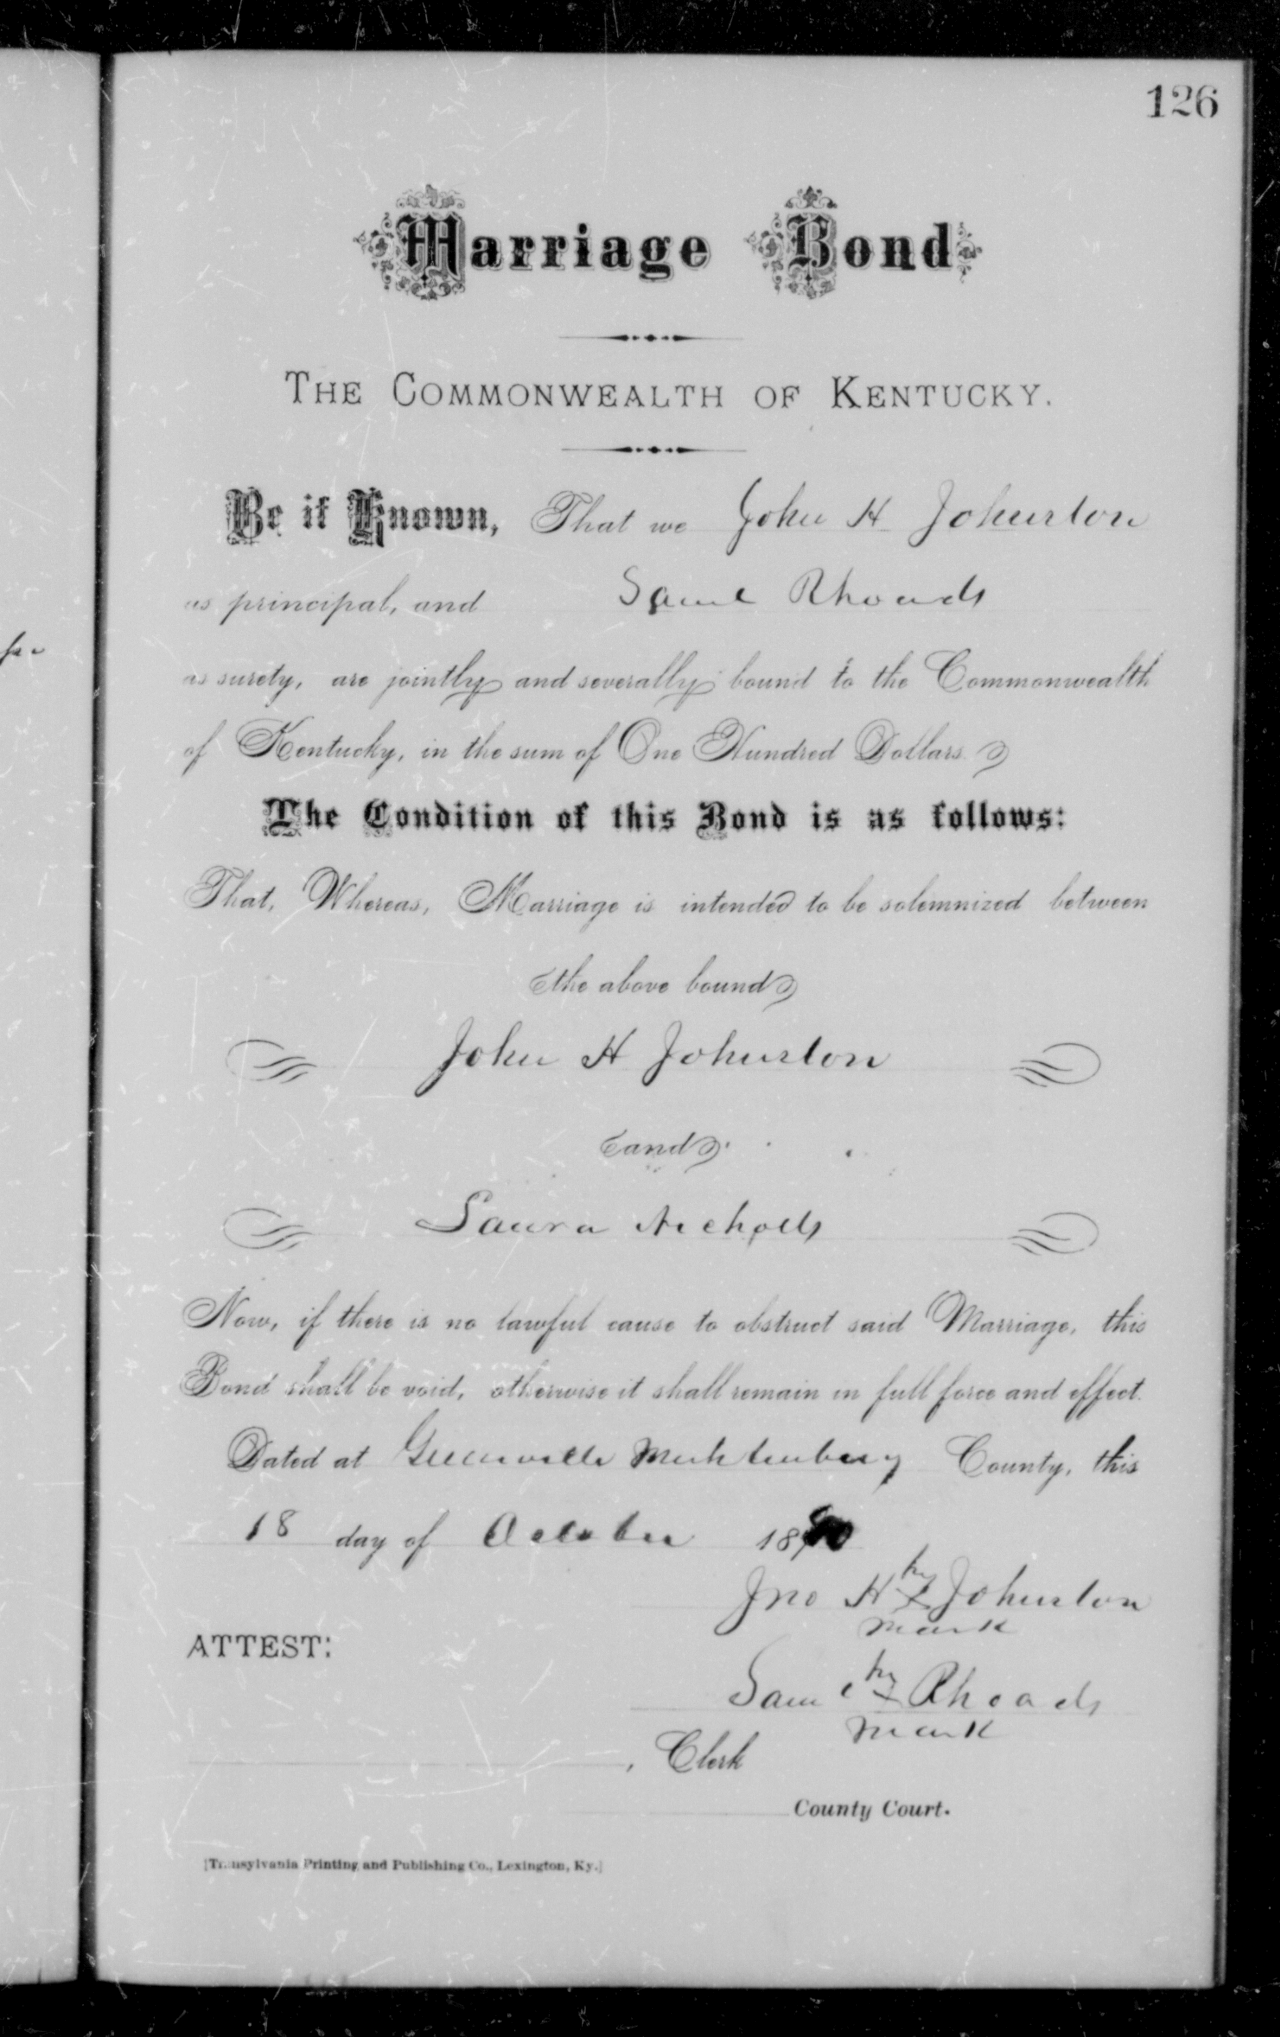 126
Marriage Bond
THE COMMONWEALTH OF KENTUCKY.
Be it Known, That we John H Johnston
as principal, and Saml Rhoads
as surety, are jointly and severally bound to the Commonwealth
of Kentucky, in the sum of One Hundred Dollars.
The Condition of this Bond is as follows:
That, Whereas, Marriage is intended to be solemnized between
the above bound
John H Johnston
and
Laura Nicholls
Now, if there is no lawful cause to obstruct said Marriage, this
Bond shall be void, otherwise it shall remain in full force and effect.
Dated at Greenville Muhlenburg County, this
18 day of October 1890
Jno H his x Johnston
mark
ATTEST:
Saml his x Rhoads
mark
, Clerk
County Court.
[Transylvania Printing and Publishing Co., Lexington, Ky.]